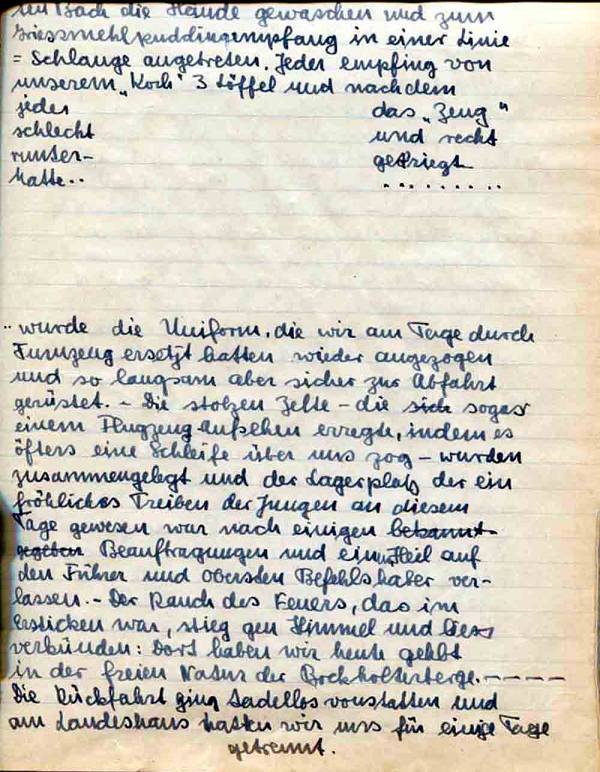 im Bach die Hände gewaschen und zum
Griessmehlpuddingempfang in einer Linie
= Schlange angetreten. Jeder empfing von
unserem „Koch" 3 Löffel und nachdem
jeder das „Zeug"
schlecht und recht
runter- gekriegt
hatte.. ........
.. wurde die Uniform, die wir am Tage durch
Turnzeug ersetzt hatten wieder angezogen
und so langsam aber sicher zur Abfahrt
gerüstet. – Die stolzen Zelte – die sich sogar
einem Flugzeug Aufsehen erregte, indem es
öfters eine Schleife über uns zog – wurden
zusammengelegt und der Lagerplatz der ein
fröhliches Treiben der Jungen an diesem
Tage gewesen war nach einigen bekannt-
gegeben Beauftragungen und einem Heil auf
den Führer und obersten Befehlshaber ver-
lassen. – Der Rauch des Feuers, das im
Ersticken war, stieg gen Himmel und liess
verkünden: Dort haben wir heute gelebt
in der freien Natur der Bockholterberge. – – – – –
Die Rückfahrt ging tadellos vonstatten und
am Landeshaus hatten wir uns für einige Tage
getrennt.